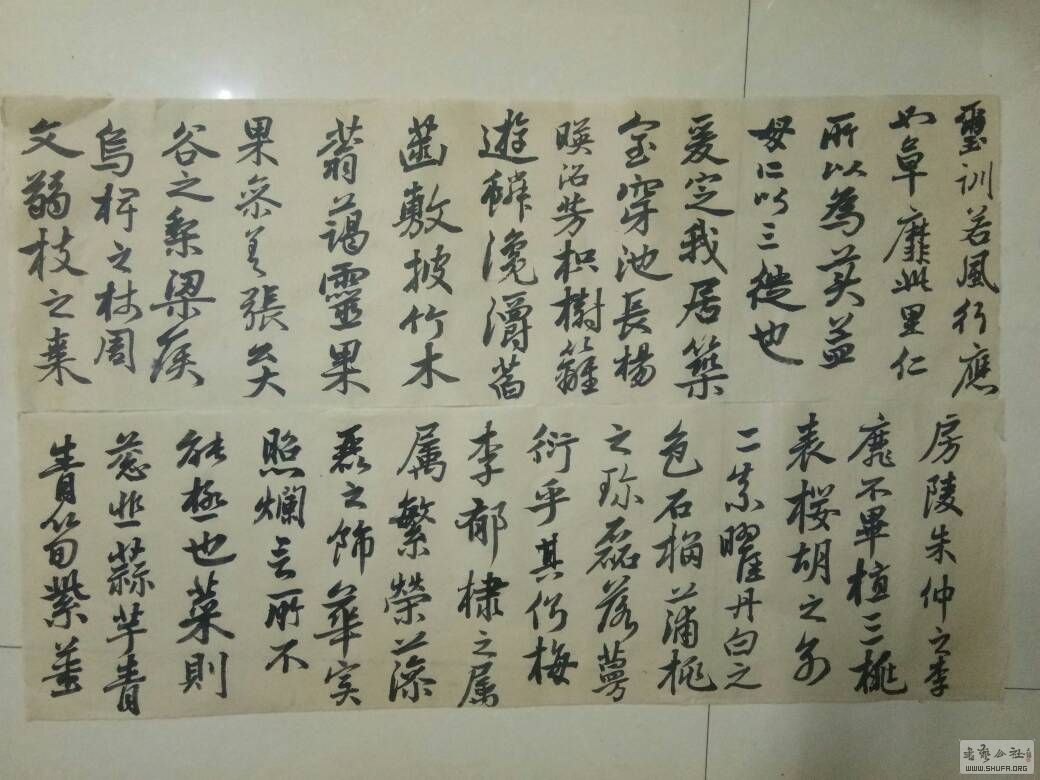 璽訓若風行應
如草靡此里仁
所以為美孟
母所以三徙也
爰定我居築
室穿池長楊
暎沼芳枳樹籬
遊鱗瀺灂萏
菡敷披竹木
蓊藹靈果
果參差張公大
谷之梨梁侯
烏椑之柿周
文弱枝之棗
房陵朱仲之李
靡不畢植三桃
表櫻胡之別
二柰曜丹白之
色石榴蒲桃
之珍磊落蔓
衍乎其側梅
李郁棣之属
属繁榮藻
麗之飾華实
照爛言所不
能極也菜則
葱韭蒜芋青
青筍紫薑
書藝公社
WWW.SHUFA.ORG